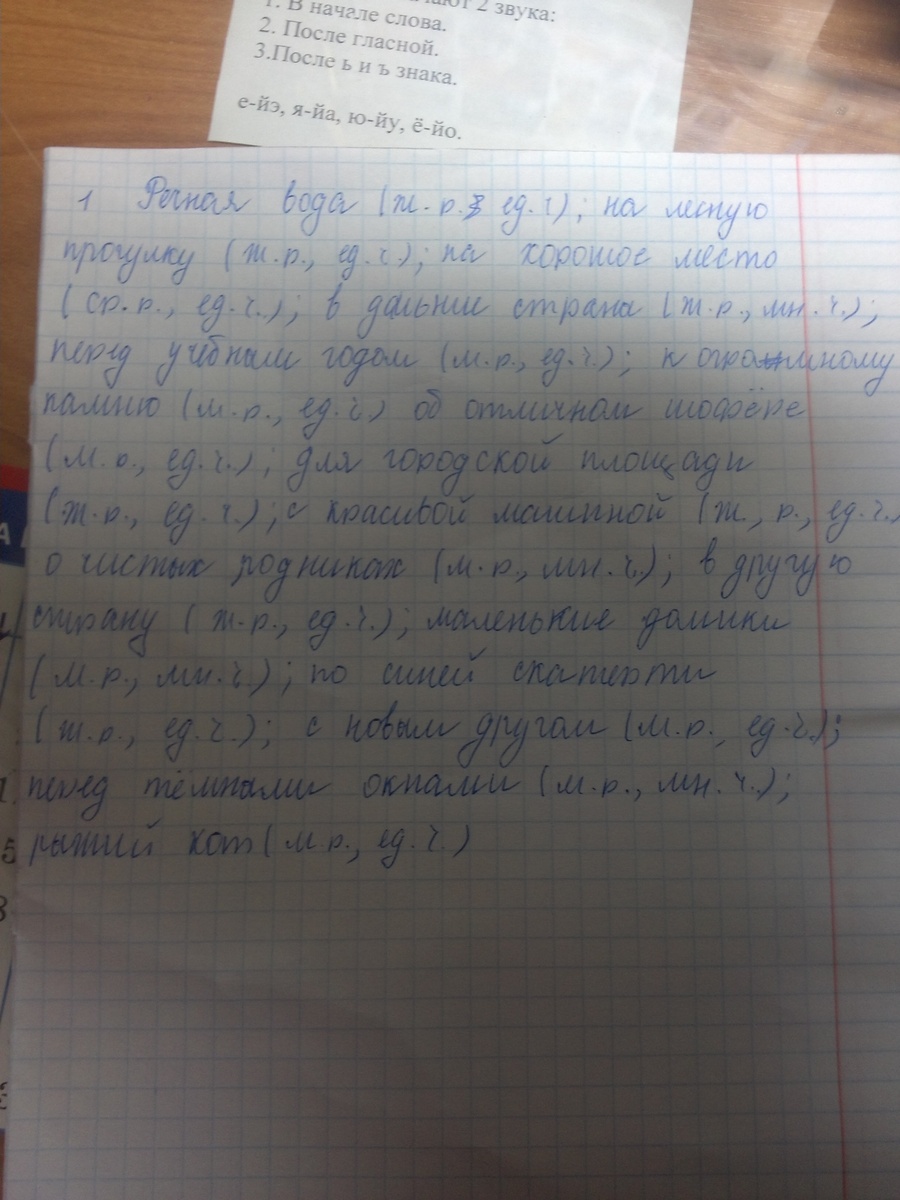 1. В начале слова.
2. После гласной.
3.После ь и ъ знака.
е-йэ, я-йа, ю-йу, ё-йо.
1 Речная вода (ж.р. ед.ч); на лесную
прогулку (ж.р., ед.ч.); на хорошое место
(ср.р., ед.ч.); в дальние страна (ж.р., мн.ч.);
перед учебным годом (м.р., ед.ч.); к огромному
камню (м.р., ед.ч.) об отличном шофёре
(м.р., ед.ч.); для городской площади
(ж.р., ед.ч.); с красивой машиной (ж., р., ед.ч.,
о чистых родниках (м.р., мн.ч.); в другую
страну (ж.р., ед.ч.); маленькие домики
(м.р., мн.ч.); по синей скатерти
(ж.р., ед.ч.); с новым другом (м.р., ед.ч.);
перед тёмными окнами (м.р., мн.ч.);
рыжий кот (м.р., ед.ч.)